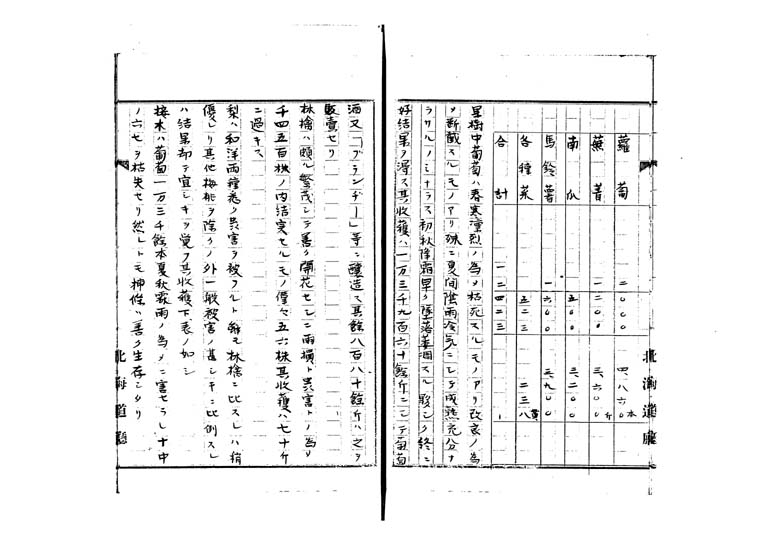 蘿蔔 二〇〇〇 四、八六〇本
蕪菁 一二〇〇 三、六〇〇斤
南瓜 五〇〇 三、二〇〇
馬鈴薯 一六〇〇 三、九〇〇
各種菜 五二三 二三八貫
合計 一二四二三
果樹中葡萄ハ春寒凜烈ノ為メ枯死スルモノアリ改良ノ為
メ斬截スルモノアリ殊ニ夏間陰雨冷気ニシテ成熟充分ナ
ラサルノミナラス初秋降霜早ク墜落萎凋スル夥シク終ニ
好結果ヲ得ス其収穫ハ一万三千九百六十餘斤ニシテ葡萄
酒又「ブランヂー」等ニ醸造ス其餘八百八十餘斤ハ之ヲ
販売セリ
林檎ハ頗ル繁茂シテ善ク開花セシニ雨損ト虫害トノ為メ
千四五百株ノ内結実セルモノ僅々五六株其収穫ハ七十斤
ニ過キス
梨ハ和洋両種悉ク虫害ヲ被フルト雖モ林檎ニ比スレハ稍
優レリ其他梅桃ヲ除クノ外一般被害ノ甚シキニ比例スレ
ハ結果却テ宜シキヲ覚フ其収穫下表ノ如シ
接木ハ葡萄一万三千餘本夏秋霖雨ノ為メニ害セラレ十中
ノ六七ヲ枯失セリ然レトモ挿條ハ善ク生存シタリ
北海道廳
北海道廳